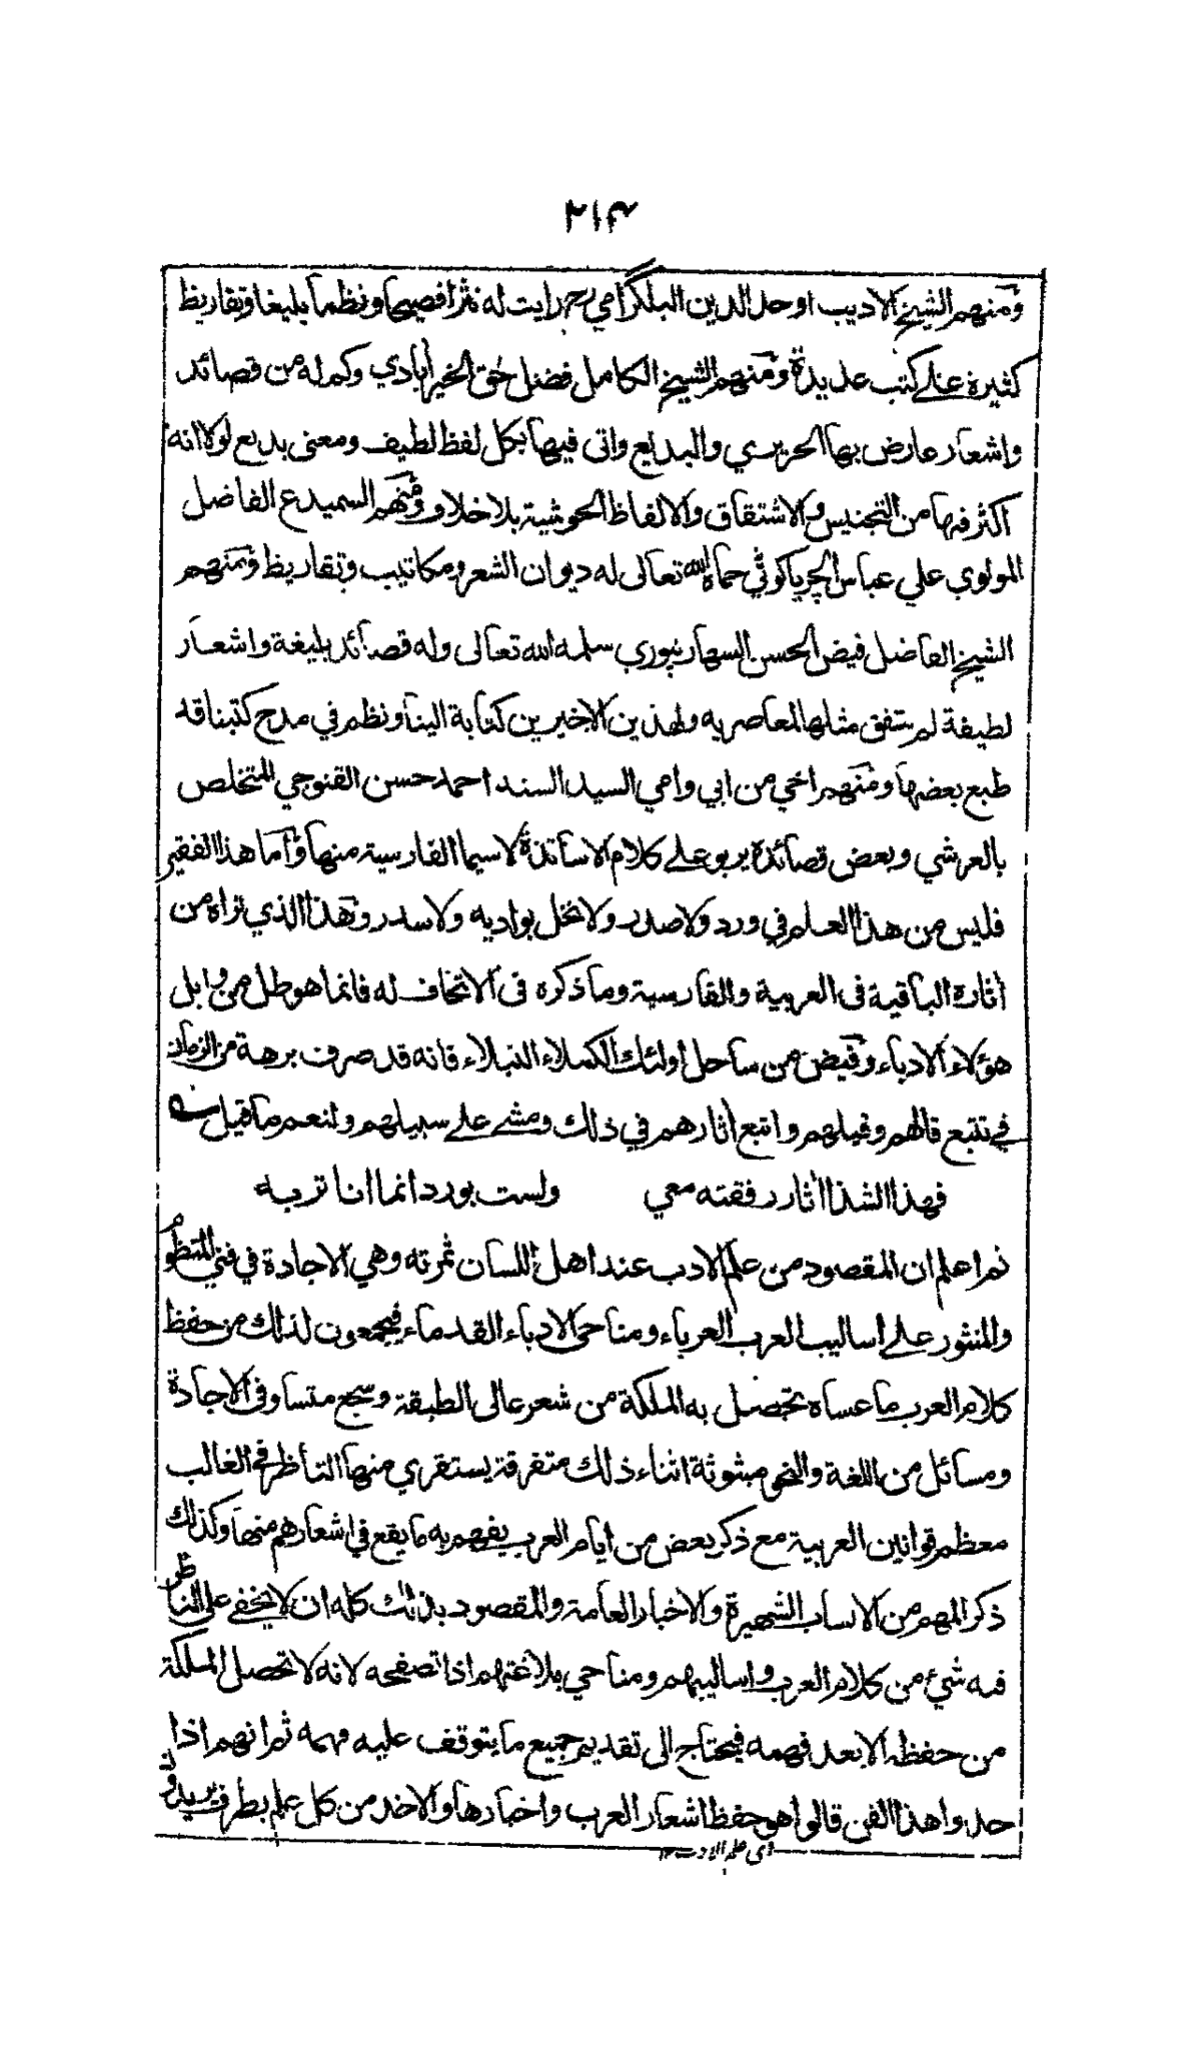 ٢١٤
ومنهم الشيخ الاديب اوحد الدين البلكرامي رح رايت له نثرا فصيحا ونظما بليغا وتقاريظ
كثيرة على كتب عديدة ومنهم الشيخ الكامل فضل حق الخيرابادي وكم له من قصائد
واشعار عارض بها الحريري والبديع واتى فيها بكل لفظ لطيف ومعنى بديع لولا انه
اكثر فيها من التجنيس والاشتقاق والالفاظ الحوشية بلا خلاو ومنهم السميدع الفاضل
المولوي علي عباس الچرياكوٹي حماه الله تعالى له ديوان الشعر ومكاتيب وتقاريظ ومنهم
الشيخ الفاضل فيض الحسن السهارنپوري سلمه الله تعالى وله قصائد بليغة واشعار
لطيفة لم يتفق مثلها لمعاصريه ولهذين الاخيرين كتابة الينا ونظم في مدح كتبنا قد
طبع بعضها ومنهم اخي من ابي وامي السيد السند احمد حسن القنوجي المتخلص
بالعرشي وبعض قصائده يربو على كلام الاساتذة لاسيما الفارسية منها واما هذا الفقير
فليس من هذا العلم في ورد ولا صدر ولا نخل بواديه ولا سدر وهذا الذي تراه من
اثاره الباقية في العربية والفارسية وما ذكره في الاتحاف له فانما هو طل من وابل
هؤلاء الادباء وفيض من ساحل اولئك الكملاء النبلاء فانه قد صرف برهة من الزمان
في تتبع قالهم وقيلهم واتبع اثارهم في ذلك ومشى على سبيلهم ولنعم ما قيل
فهذا الشذا اثار رفقته معي ولست بورد انما انا تربه
ثم اعلم ان المقصود من علم الادب عند اهل اللسان ثمرته وهي الاجادة في فني المنظوم
والمنثور على اساليب العرب العرباء ومناحى الادباء القدماء فيجمعون لذلك من حفظ
كلام العرب ما عساه تحصل به الملكة من شعر عالى الطبقة وسجع متساو في الاجادة
ومسائل من اللغة والنحو مبثوثة اثناء ذلك متفرقة يستقري منها الناظر في الغالب
معظم قوانين العربية مع ذكر بعض من ايام العرب يفهم به ما يقع في اشعارهم منها وكذلك
ذكر المهم من الانساب الشهيرة والاخبار العامة والمقصود بذلك كله ان لا يخفى على الناظر
فيه شيء من كلام العرب واساليبهم ومناحي بلاغتهم اذا تصفحه لانه لا تحصل الملكة
من حفظه الا بعد فهمه فيحتاج الى تقديم جميع ما يتوقف عليه فهمه ثم انهم اذا
حدوا هذا الفن قالوا هو حفظ اشعار العرب واخبارها والاخذ من كل علم بطرف يريدون
اى علم الادب ١٢